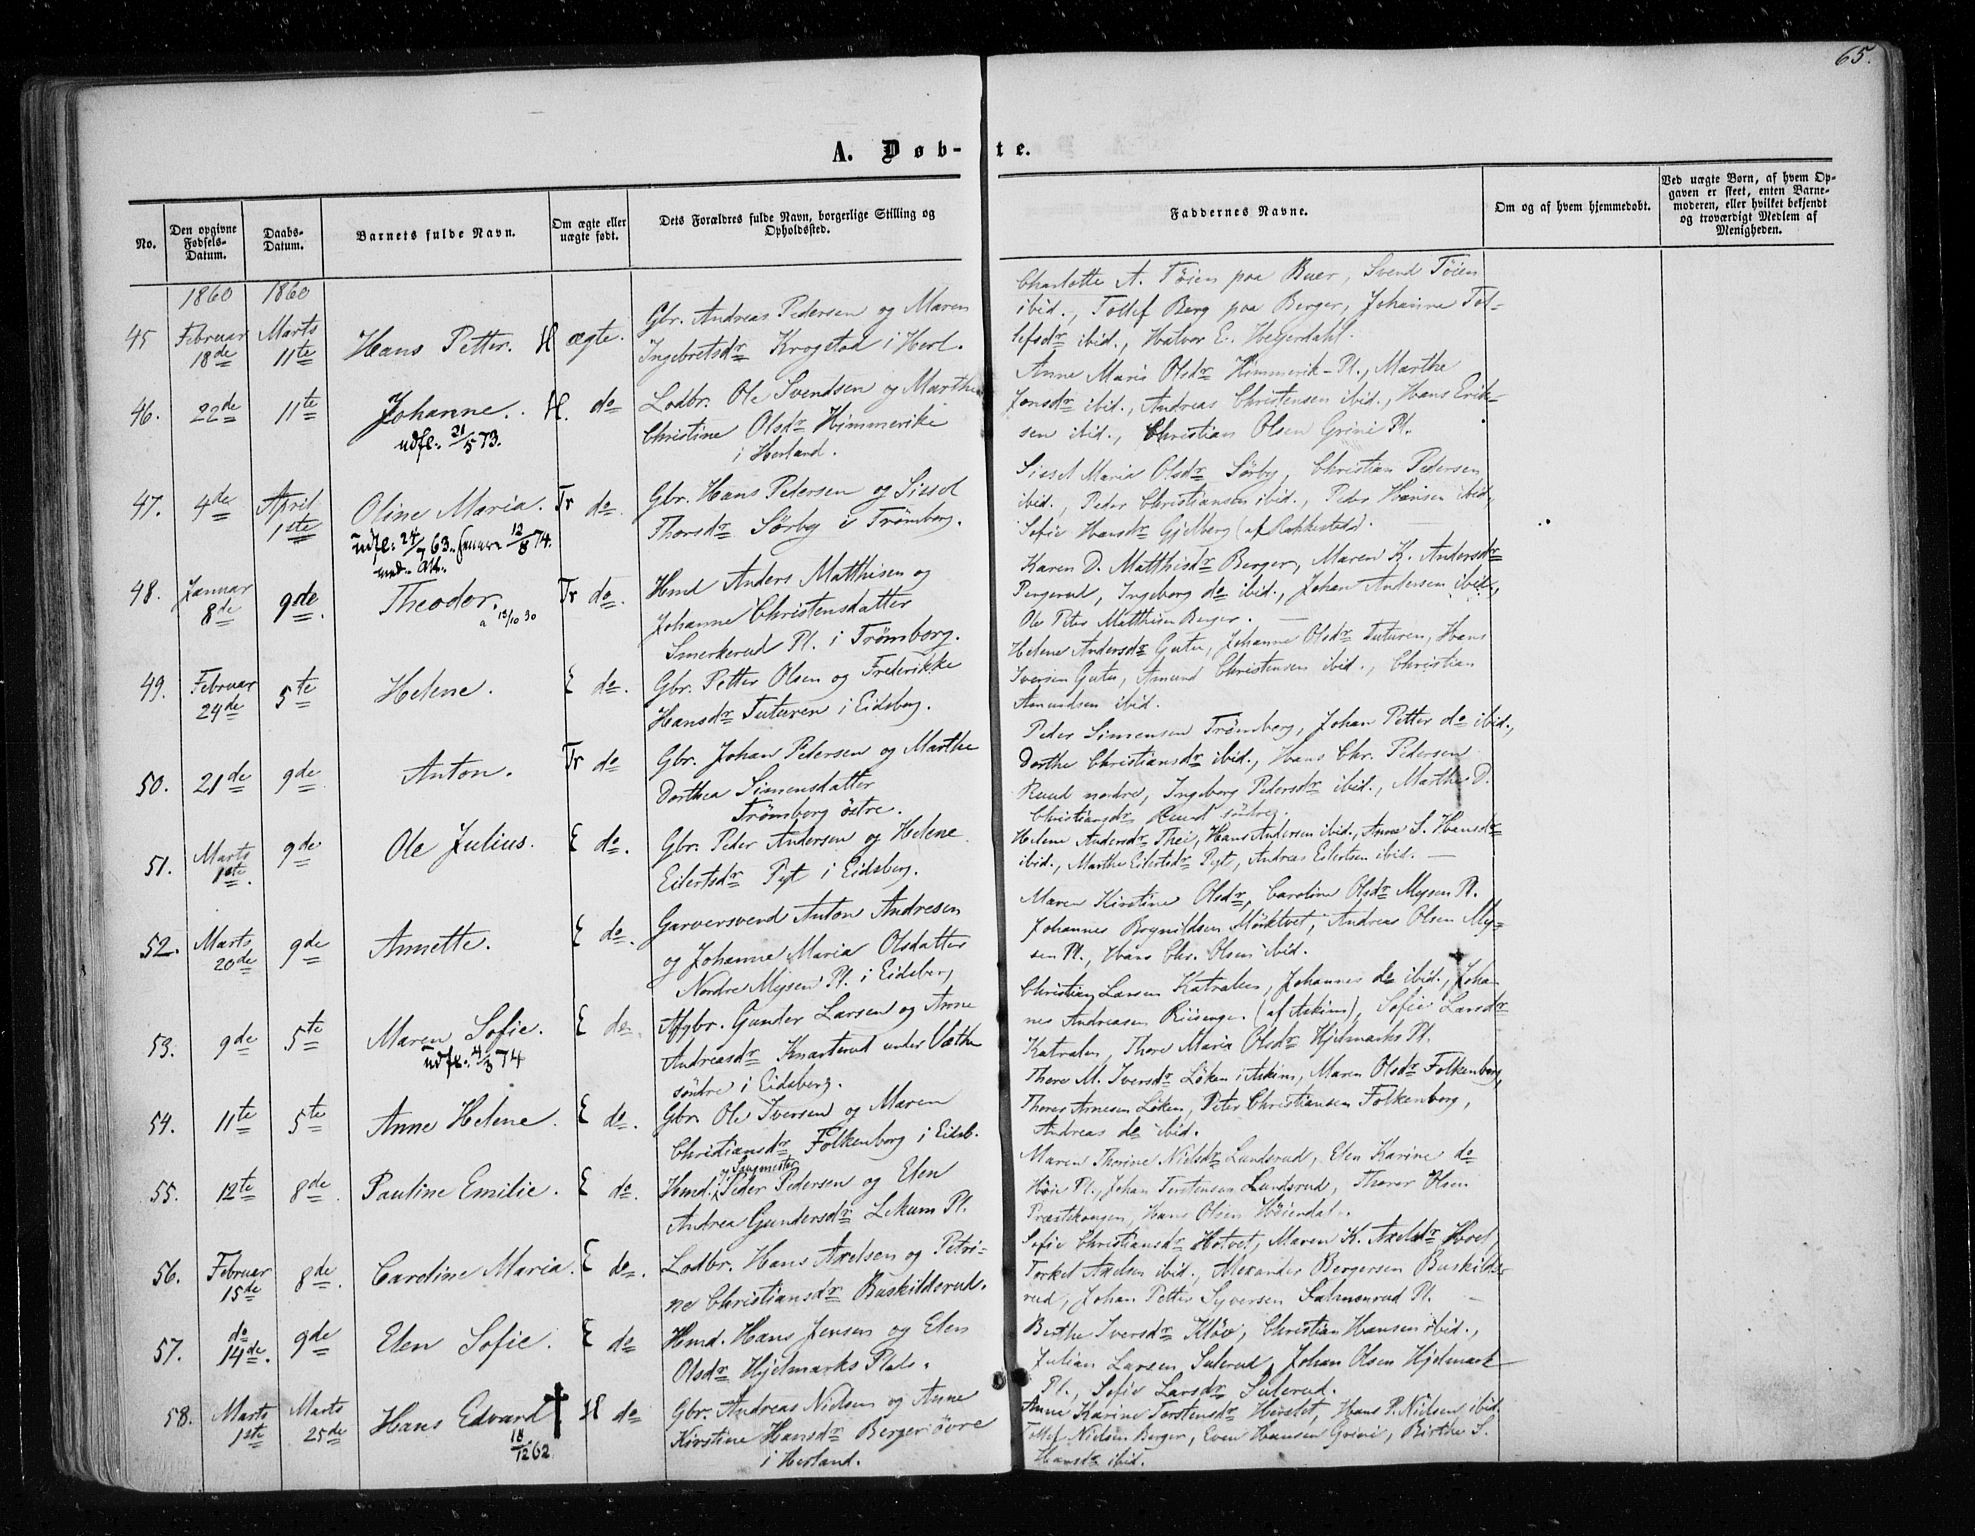 65.
A. Døb-te.
No.
Den opgivne Fødsels-Datum.
Daabs-Datum.
Barnets fulde Navn.
Om ægte eller uægte født.
Dets Forældres fulde Navn, borgerlige Stilling og Opholdssted.
Faddernes Navne.
Om og af hvem hjemmedøbt.
Ved uægte Børn, af hvem Opgaven er skeet, enten Barnemoderen, eller hvilket bekjendt og troværdigt Medlem af Menigheden.
1860 1860
45 Februar 18de Marts 11te Hans Petter. H ægte.
Gbr. Andreas Pedersen og Maren
Ingebretsdr Krogstad i Herl.
Charlotte A. Töien paa Buer, Svend Töien
ibid., Tollef Berg paa Berger, Johanne Tol-
lefsdr ibid., Halvor E. Heyerdahl.
46. 22de 11te Johanne. H. do
udfl. 21/5 73.
Lodbr. Ole Svendsen og Marthe
Christine Olsdr Himmerike
i Herland.
Anne Marie Olsdr Himmerik-Pl., Marthe
Jonsdr ibid., Andreas Christensen ibid., Hans Erik-
sen ibid., Christian Olsen Grini Pl.
47. 4de April 1ste Oline Maria. Tr do.
udfl. 24/7 63. 12/8 74.
med. Att.
Gbr. Hans Pedersen og Sissel
Thorsdr Sörby i Trömborg.
Sissel Maria Olsdr Sörby, Christian Pedersen
ibid., Peder Christiansen ibid., Peder Hansen ibid.,
Sofie Hansdr Gjelberg (af Rakkestad).
48. Januar 8de 9de. Theodor. Tr do.
a 13/10 30
Hmd Anders Matthisen og
Johanne Christensdatter
Smerkerud Pl. i Trömborg.
Karen D. Matthisdr Berger, Maren K. Andersdr
Pergerud, Ingeborg do ibid., Johan Andersen ibid.,
Ole Peter Matthisen Berger.
49. Februar 24de 5te Helene. E do.
Gbr. Petter Olsen og Frederikke
Hansdr Tuturen i Eidsberg.
Helene Andersdr Gutu, Johanne Olsdr Tuturen, Hans
Iversen Gutu, Amund Christensen ibid., Christian
Amundsen ibid.
50. 21de 9de Anton. Tr do
Gbr. Johan Pedersen og Marthe
Dorthea Simensdatter
Trömborg östre.
Peder Simensen Trömborg, Johan Petter do ibid.,
Dorthe Christiansdr ibid., Hans Chr. Pedersen
Ruud nordre, Ingeborg Pedersdr ibid., Marthe D.
Christiansdr Ruud söndre.
51. Marts 1ste. 9de Ole Julius. E do.
Gbr. Peder Andersen og Helene
Eilertsdr Pyt i Eidsberg.
Helene Andersdr Thei, Hans Andersen ibid., Anne S. Hansdr
ibid., Marthe Eilertsdr Pyt, Andreas Eilertsen ibid.
52. Marts 20de 9de Annette. E do.
Garversvend Anton Andresen
og Johanne Maria Olsdatter
Nordre Mysen Pl. i Eidsberg
Maren Kirstine Olsdr, Caroline Olsdr Mysen Pl.
Johannes Brynildsen Mörktvet, Andreas Olsen My-
sen Pl., Hans Chr. Olsen ibid.
53. 9de 5te Maren Sofie. E do.
udfl. 4/3 74
Afgbr. Gunder Larsen og Anne
Andreasdr Knarterud under Væthe
söndre i Eidsberg.
Christian Larsen Katralen, Johannes do ibid., Johan
nes Andreasen Riisinge (af Askim), Sofie Larsdr
Katralen, Thore Maria Olsdr Hjelmarks Pl.
54. 11te 5te Anne Helene. E do.
Gbr. Ole Iversen og Maren
Christiansdr, Folkenborg i Eidsb.
Thore M. Iversdr Löken i Askim, Maren Olsdr Folkenborg,
Thorer Arnesen Löken, Peter Christiansen Folkenborg,
Andreas do ibid.
55. 12te 8de. Pauline Emilie. E do.
og Saugmester
Hmd. Peder Pedersen og Elen
Andrea Gundersdr Lekum Pl.
Maren Thorine Nielsdr Lundsrud, Elen Karine do
Höie Pl., Johan Torstensen Lundsrud, Thorer Olsen
Præstekongen, Hans Olsen Höiendal.
56. Februar 15de 8de. Caroline Maria. E do.
Lodbr. Hans Axelsen og Petri-
ne Christiansdr Buskilsrud.
Sofie Christiansdr Hotvet, Maren K. Axelsdr Hoel,
Torkel Axelsen ibid., Alexander Bergersen Buskilds-
rud, Johan Petter Syversen Salmonrud Pl.
57. do 14de. 9de Elen Sofie. E do
Hmd. Hans Jensen og Elen
Olsdr Hjelmarks Plads.
Berthe Iversdr Klöve, Christian Hansen ibid.,
Julian Larsen Sulerud, Johan Olsen Hjelmark
Pl., Sofie Larsdr Sulerud.
58. Marts 1ste Marts 25de Hans Edvard † H do
18/12 62
Gbr. Andreas Nielsen og Anne
Kirstine Hansdr Berger övre
i Herland.
Anne Karine Torstensdr Herstet, Hans P. Nielsen ibid.
Tollef Nielsen Berger, Even Hansen Grini, Birthe S.
Hansdr ibid.